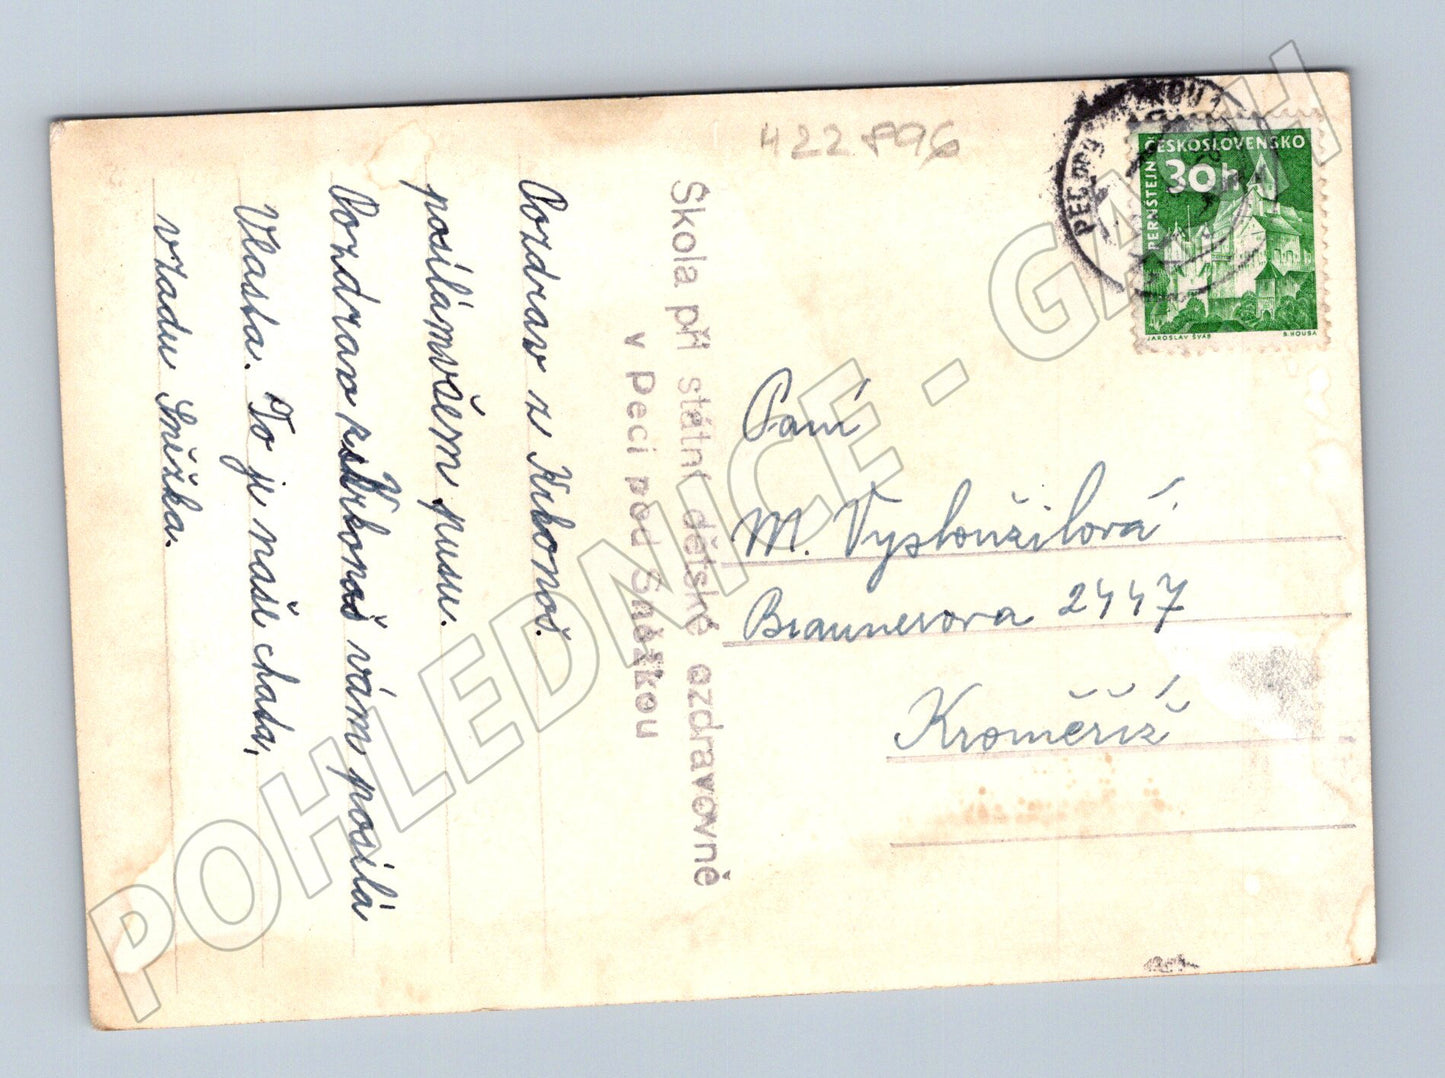 422896
Pozdrav z Krkonoš.
posílámvšem pusu.
Pozdrav Krkonoš vám posílá
Vlasta. To je naše chata,
vzadu Sněžka.
Škola při státní dětské ozdravovně
v Peci pod Sněžkou
PEC POD
ČESKOSLOVENSKO
30h
PERNŠTEJN
JAROSLAV ŠVÁB
B. HOUSA
Paní
M. Vysloužilová
Braunerova 2447
Kroměříž
POHLEDNICE - GAJAH